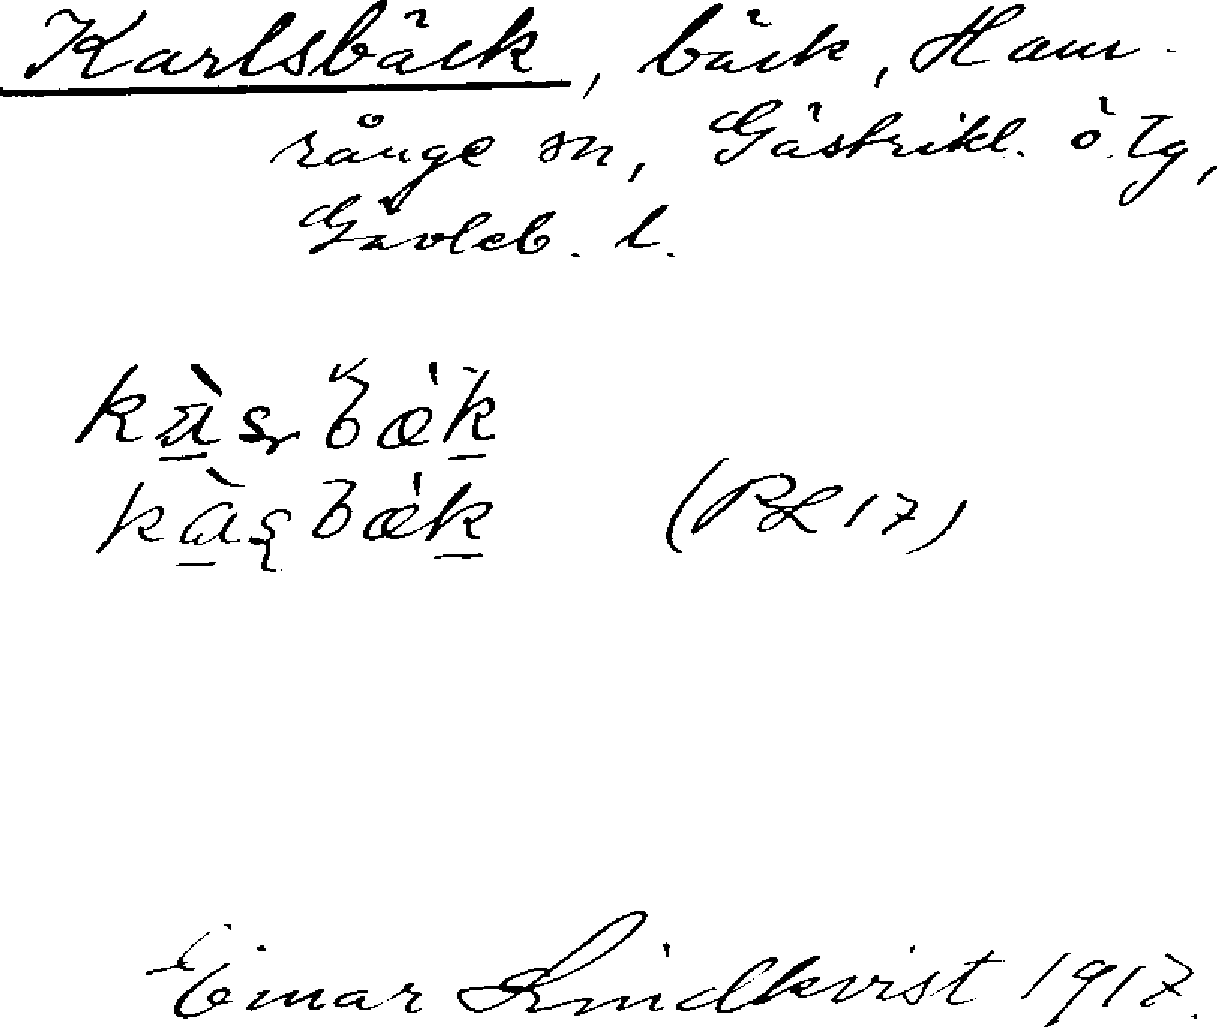 Karlsbäck, bäck, Ham-
rånge sn, Gästrikl. ö. tg,
Gävleb. l.
(PL 17)
Einar Lindkvist 1917.